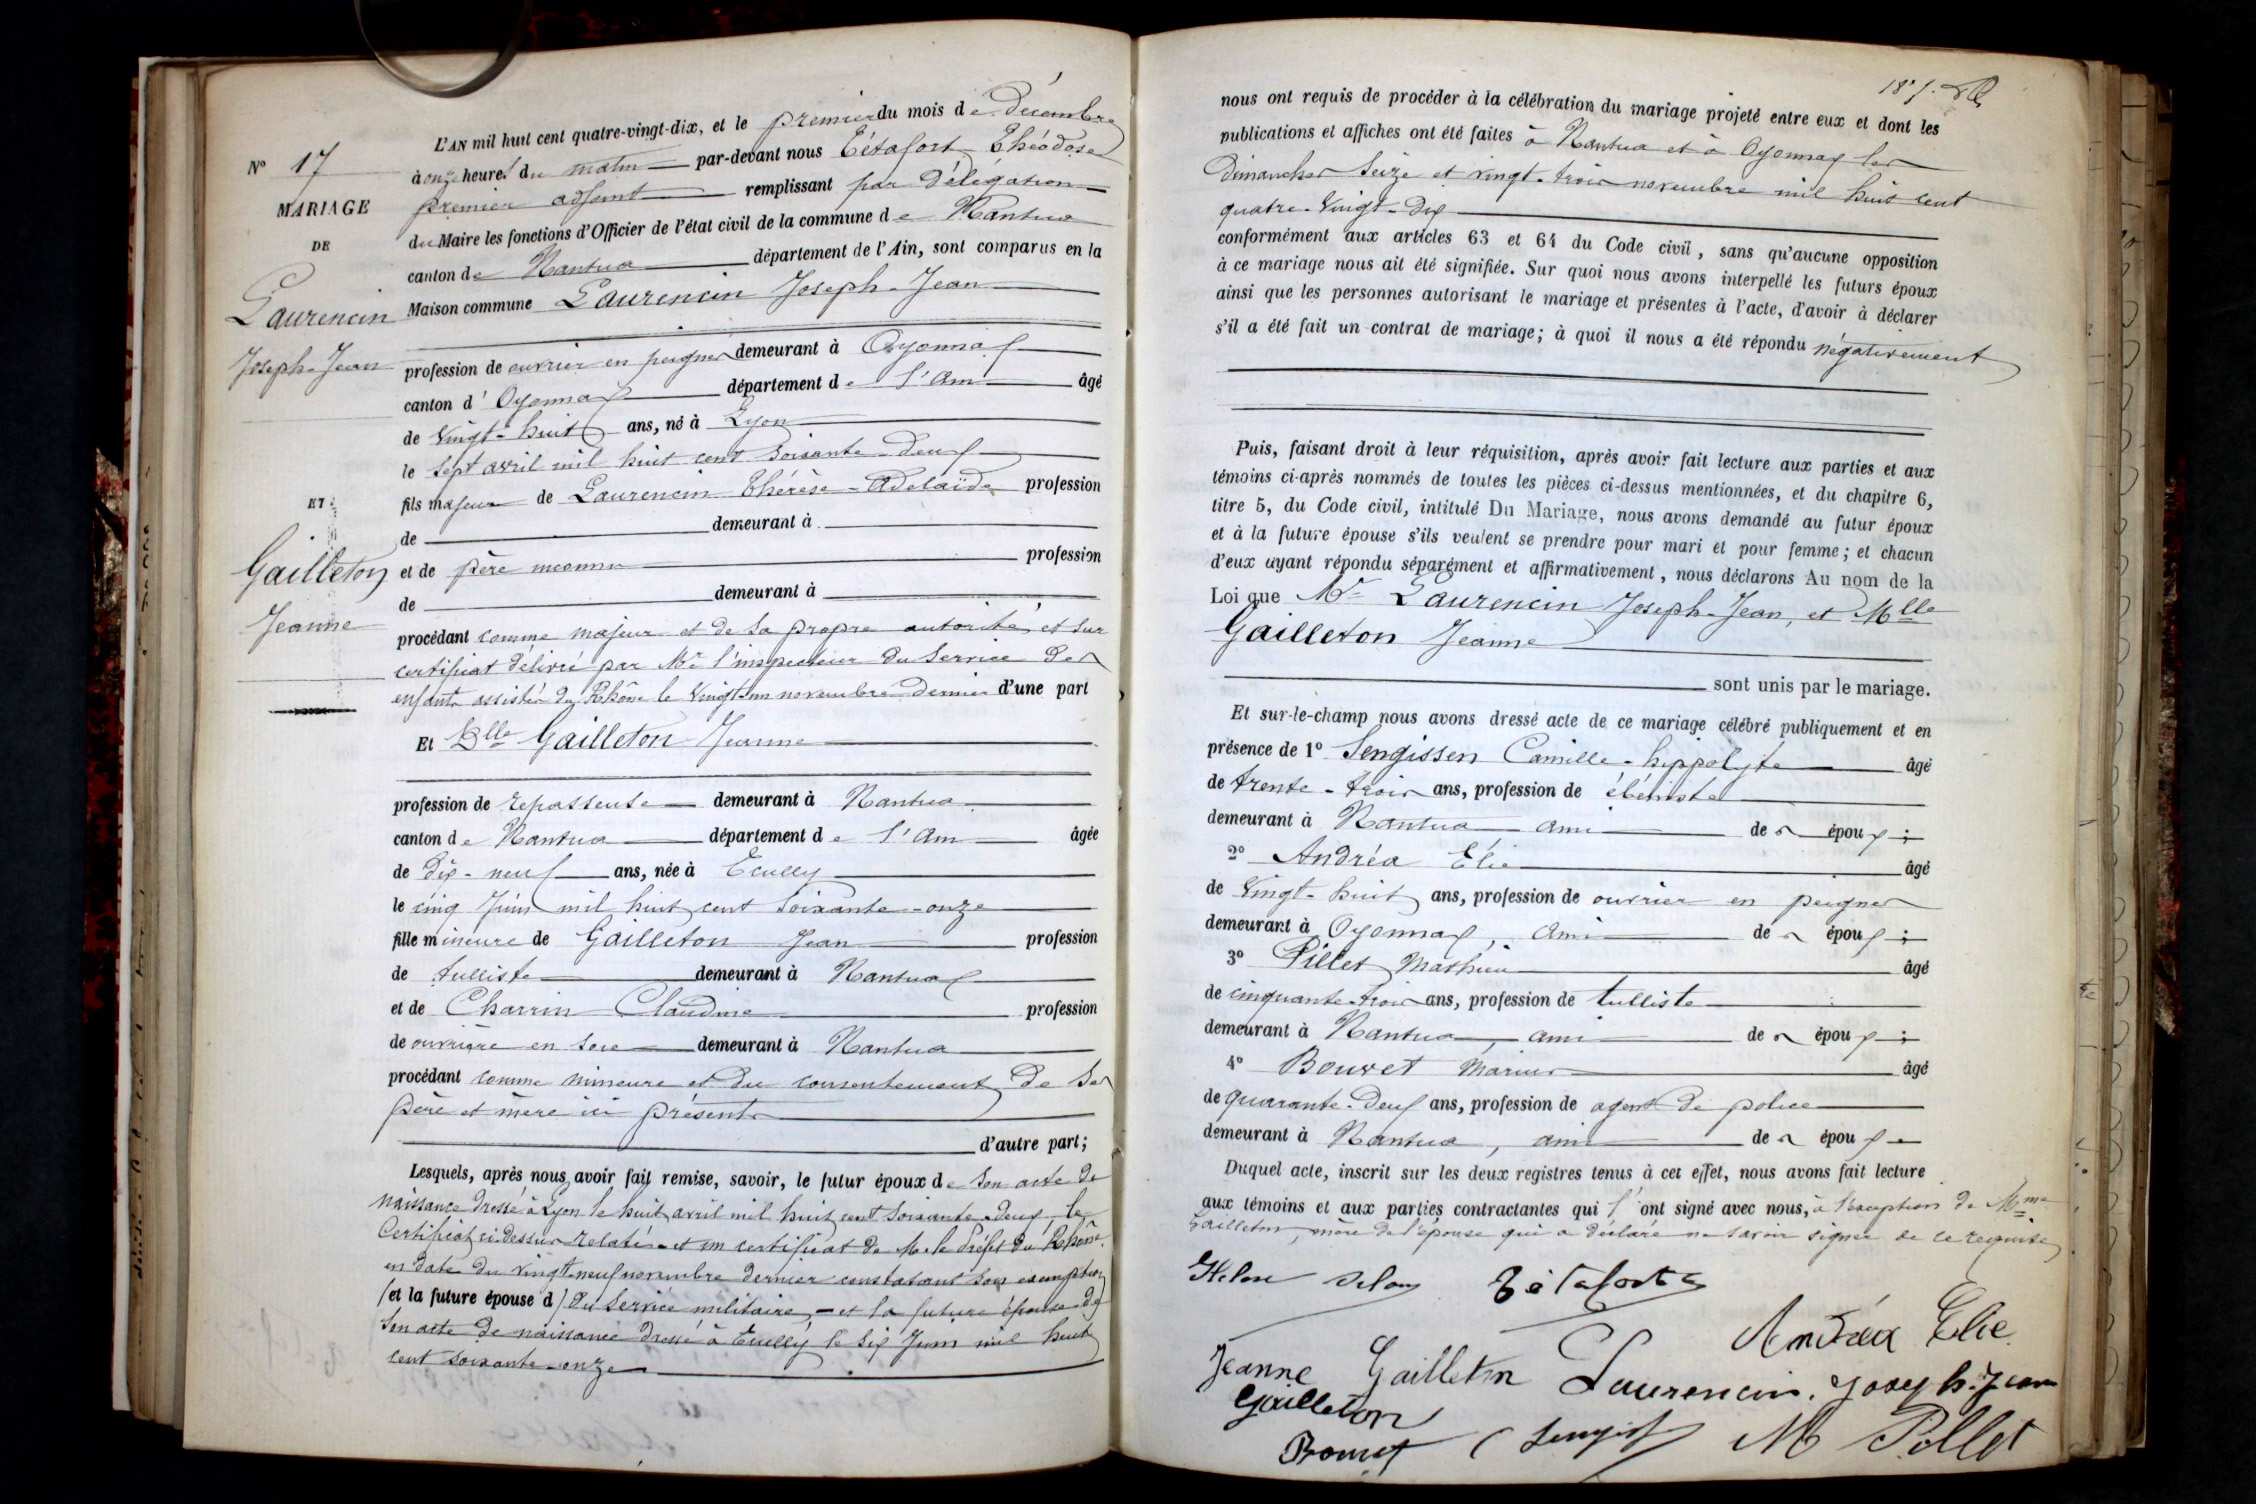 N° 17
MARIAGE
DE
Laurencin
Joseph-Jean
ET
Gailleton
Jeanne
L'AN mil huit cent quatre-vingt-dix, et le premier du mois de Décembre
à onze heures du matin par-devant nous Tétafort Théodose
premier adjoint remplissant par délégation
du Maire les fonctions d'Officier de l'état civil de la commune de Nantua
canton de Nantua département de l'Ain, sont comparus en la
Maison commune Laurencin Joseph-Jean
profession de ouvrier en peignes demeurant à Oyonnax
canton d'Oyonnax département de l'Ain âgé
de vingt-huit ans, né à Lyon
le sept avril mil huit cent soixante-deux
fils majeur de Laurencin Thérèse-Adelaïde profession
de demeurant à
et de père inconnu profession
de demeurant à
procédant comme majeur et de sa propre autorité et sur
certificat délivré par Mr l'inspecteur du Service des
enfants assistés du Rhône le vingt-un novembre dernier d'une part
Et Dlle Gailleton Jeanne
profession de repasseuse demeurant à Nantua
canton de Nantua département de l'Ain âgée
de dix-neuf ans, née à Ecully
le cinq Juin mil huit cent soixante-onze
fille mineure de Gailleton Jean profession
de tulliste demeurant à Nantua
et de Charrin Claudine profession
de ouvrière en soie demeurant à Nantua
procédant comme mineure et du consentement de ses
père et mère ici présents
d'autre part;
Lesquels, après nous avoir fait remise, savoir, le futur époux de son acte de
naissance dressé à Lyon le huit avril mil huit cent soixante-deux, le
certificat ci-dessus relaté et un certificat de Mr le Préfet du Rhône
en date du vingt-neuf novembre dernier constatant son exemption
(et la future épouse d) du Service militaire, - et la future épouse de
son acte de naissance dressé à Ecully le six Juin mil huit
cent soixante-onze
187.
nous ont requis de procéder à la célébration du mariage projeté entre eux et dont les
publications et affiches ont été faites à Nantua et à Oyonnax les
Dimanches seize et vingt-trois novembre mil huit cent
quatre-vingt-dix
conformément aux articles 63 et 64 du Code civil, sans qu'aucune opposition
à ce mariage nous ait été signifiée. Sur quoi nous avons interpellé les futurs époux
ainsi que les personnes autorisant le mariage et présentes à l'acte, d'avoir à déclarer
s'il a été fait un contrat de mariage; à quoi il nous a été répondu négativement
Puis, faisant droit à leur réquisition, après avoir fait lecture aux parties et aux
témoins ci-après nommés de toutes les pièces ci-dessus mentionnées, et du chapitre 6,
titre 5, du Code civil, intitulé Du Mariage, nous avons demandé au futur époux
et à la future épouse s'ils veulent se prendre pour mari et pour femme; et chacun
d'eux ayant répondu séparément et affirmativement, nous déclarons Au nom de la
Loi que Mr Laurencin Joseph-Jean, et Mlle
Gailleton Jeanne
sont unis par le mariage.
Et sur-le-champ nous avons dressé acte de ce mariage célébré publiquement et en
présence de 1° Sengissen Camille-hippolyte âgé
de trente-trois ans, profession de ébéniste
demeurant à Nantua ami de s époux;
2° Andréa Elie âgé
de vingt-huit ans, profession de ouvrier en peignes
demeurant à Oyonnax, ami de s époux;
3° Pillet Mathieu âgé
de cinquante-trois ans, profession de tulliste
demeurant à Nantua, ami de s époux;
4° Bouvet Marius âgé
de quarante-deux ans, profession de agent de police
demeurant à Nantua, ami de s époux
Duquel acte, inscrit sur les deux registres tenus à cet effet, nous avons fait lecture
aux témoins et aux parties contractantes qui l'ont signé avec nous, à l'exception de Mme
Gailleton, mère de l'épouse qui a déclaré ne savoir signer de ce requise
Tétafort
Andréa Elie
Jeanne Gailleton Laurencin. Joseph. Jean
Gailleton
Bouvet M Pillet